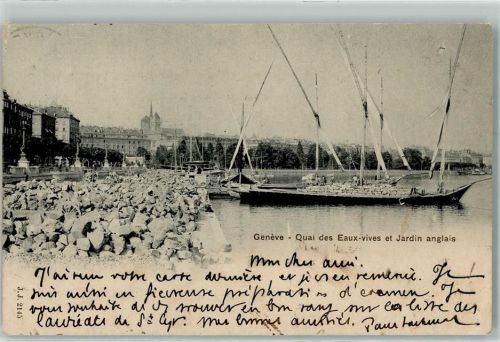 Genève - Quai des Eaux-vives et Jardin anglais
Mon cher ami.
J'ai reçu votre carte dernière et je vous en remercie. Je
suis aussi en préparations d'examen. Je
vous souhaite de vous trouver en bon rang sur la liste des
lauréats de St Cyr. Mes bonnes amitiés.
J.J. 2145